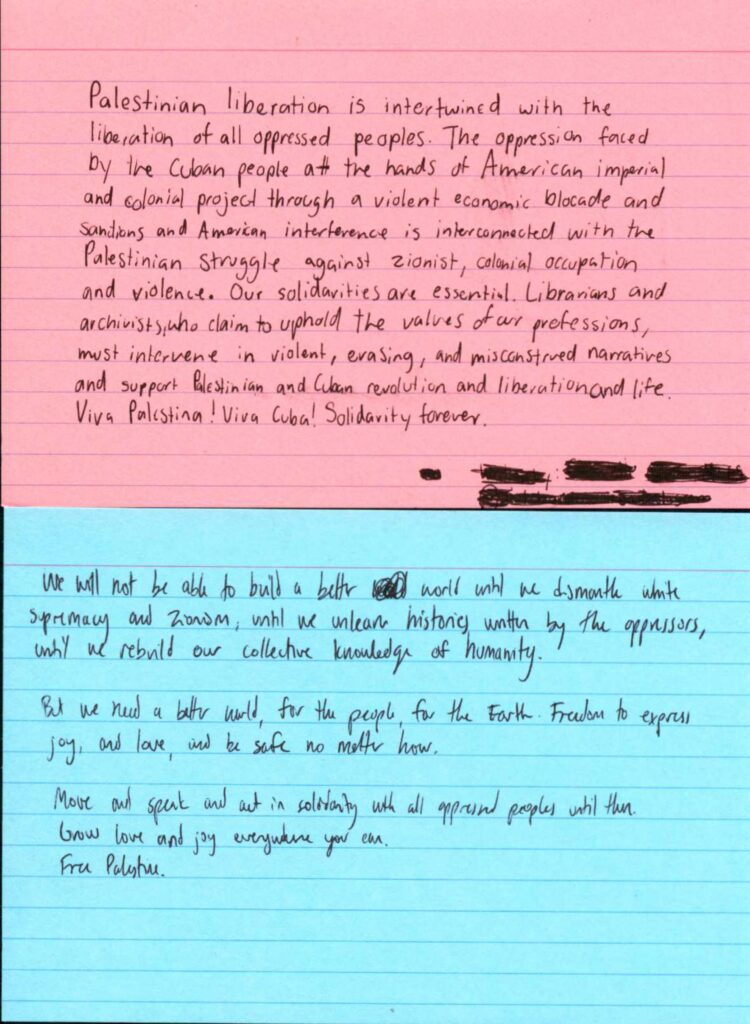 Palestinian liberation is intertwined with the
liberation of all oppressed peoples. The oppression faced
by the Cuban people att the hands of American imperial
and colonial project through a violent economic blocade and
sanctions and American interference is interconnected with the
Palestinian struggle against zionist, colonial occupation
and violence. Our solidarities are essential. Librarians and
archivists, who claim to uphold the values of our professions,
must intervene in violent, erasing, and misconstrued narratives
and support Palestinian and Cuban revolution and liberation and life.
Viva Palestina! Viva Cuba! Solidarity forever.
We will not be able to build a better world until we dismantle white
supremacy and Zionism, until we unlearn histories written by the oppressors,
until we rebuild our collective knowledge of humanity.
But we need a better world, for the people, for the Earth. Freedom to express
joy, and love, and be safe no matter how.
Move and speak and act in solidarity with all oppressed peoples until then.
Grow love and joy everywhere you can.
Free Palestine.